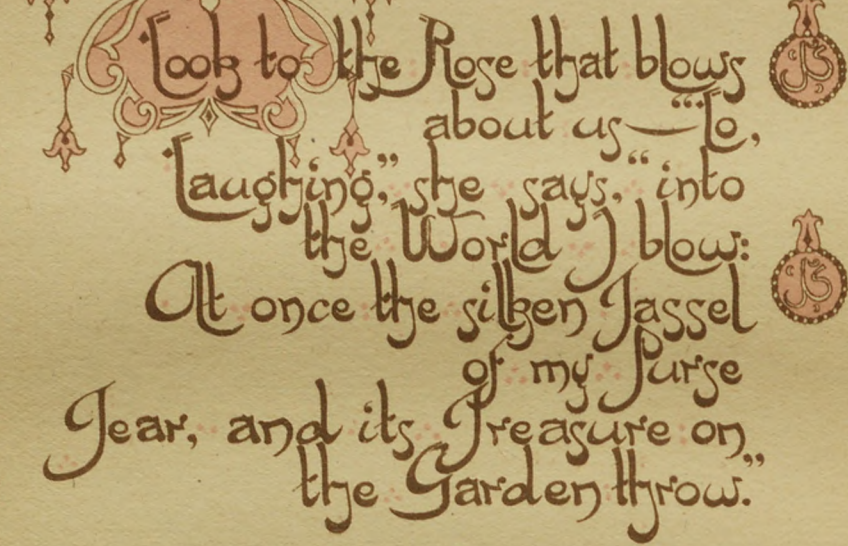 Look to the Rose that blows
about us—"Lo,
Laughing," she says, "into
the World I blow:
At once the silken Tassel
of my Purse
Tear, and its Treasure on
the Garden throw."